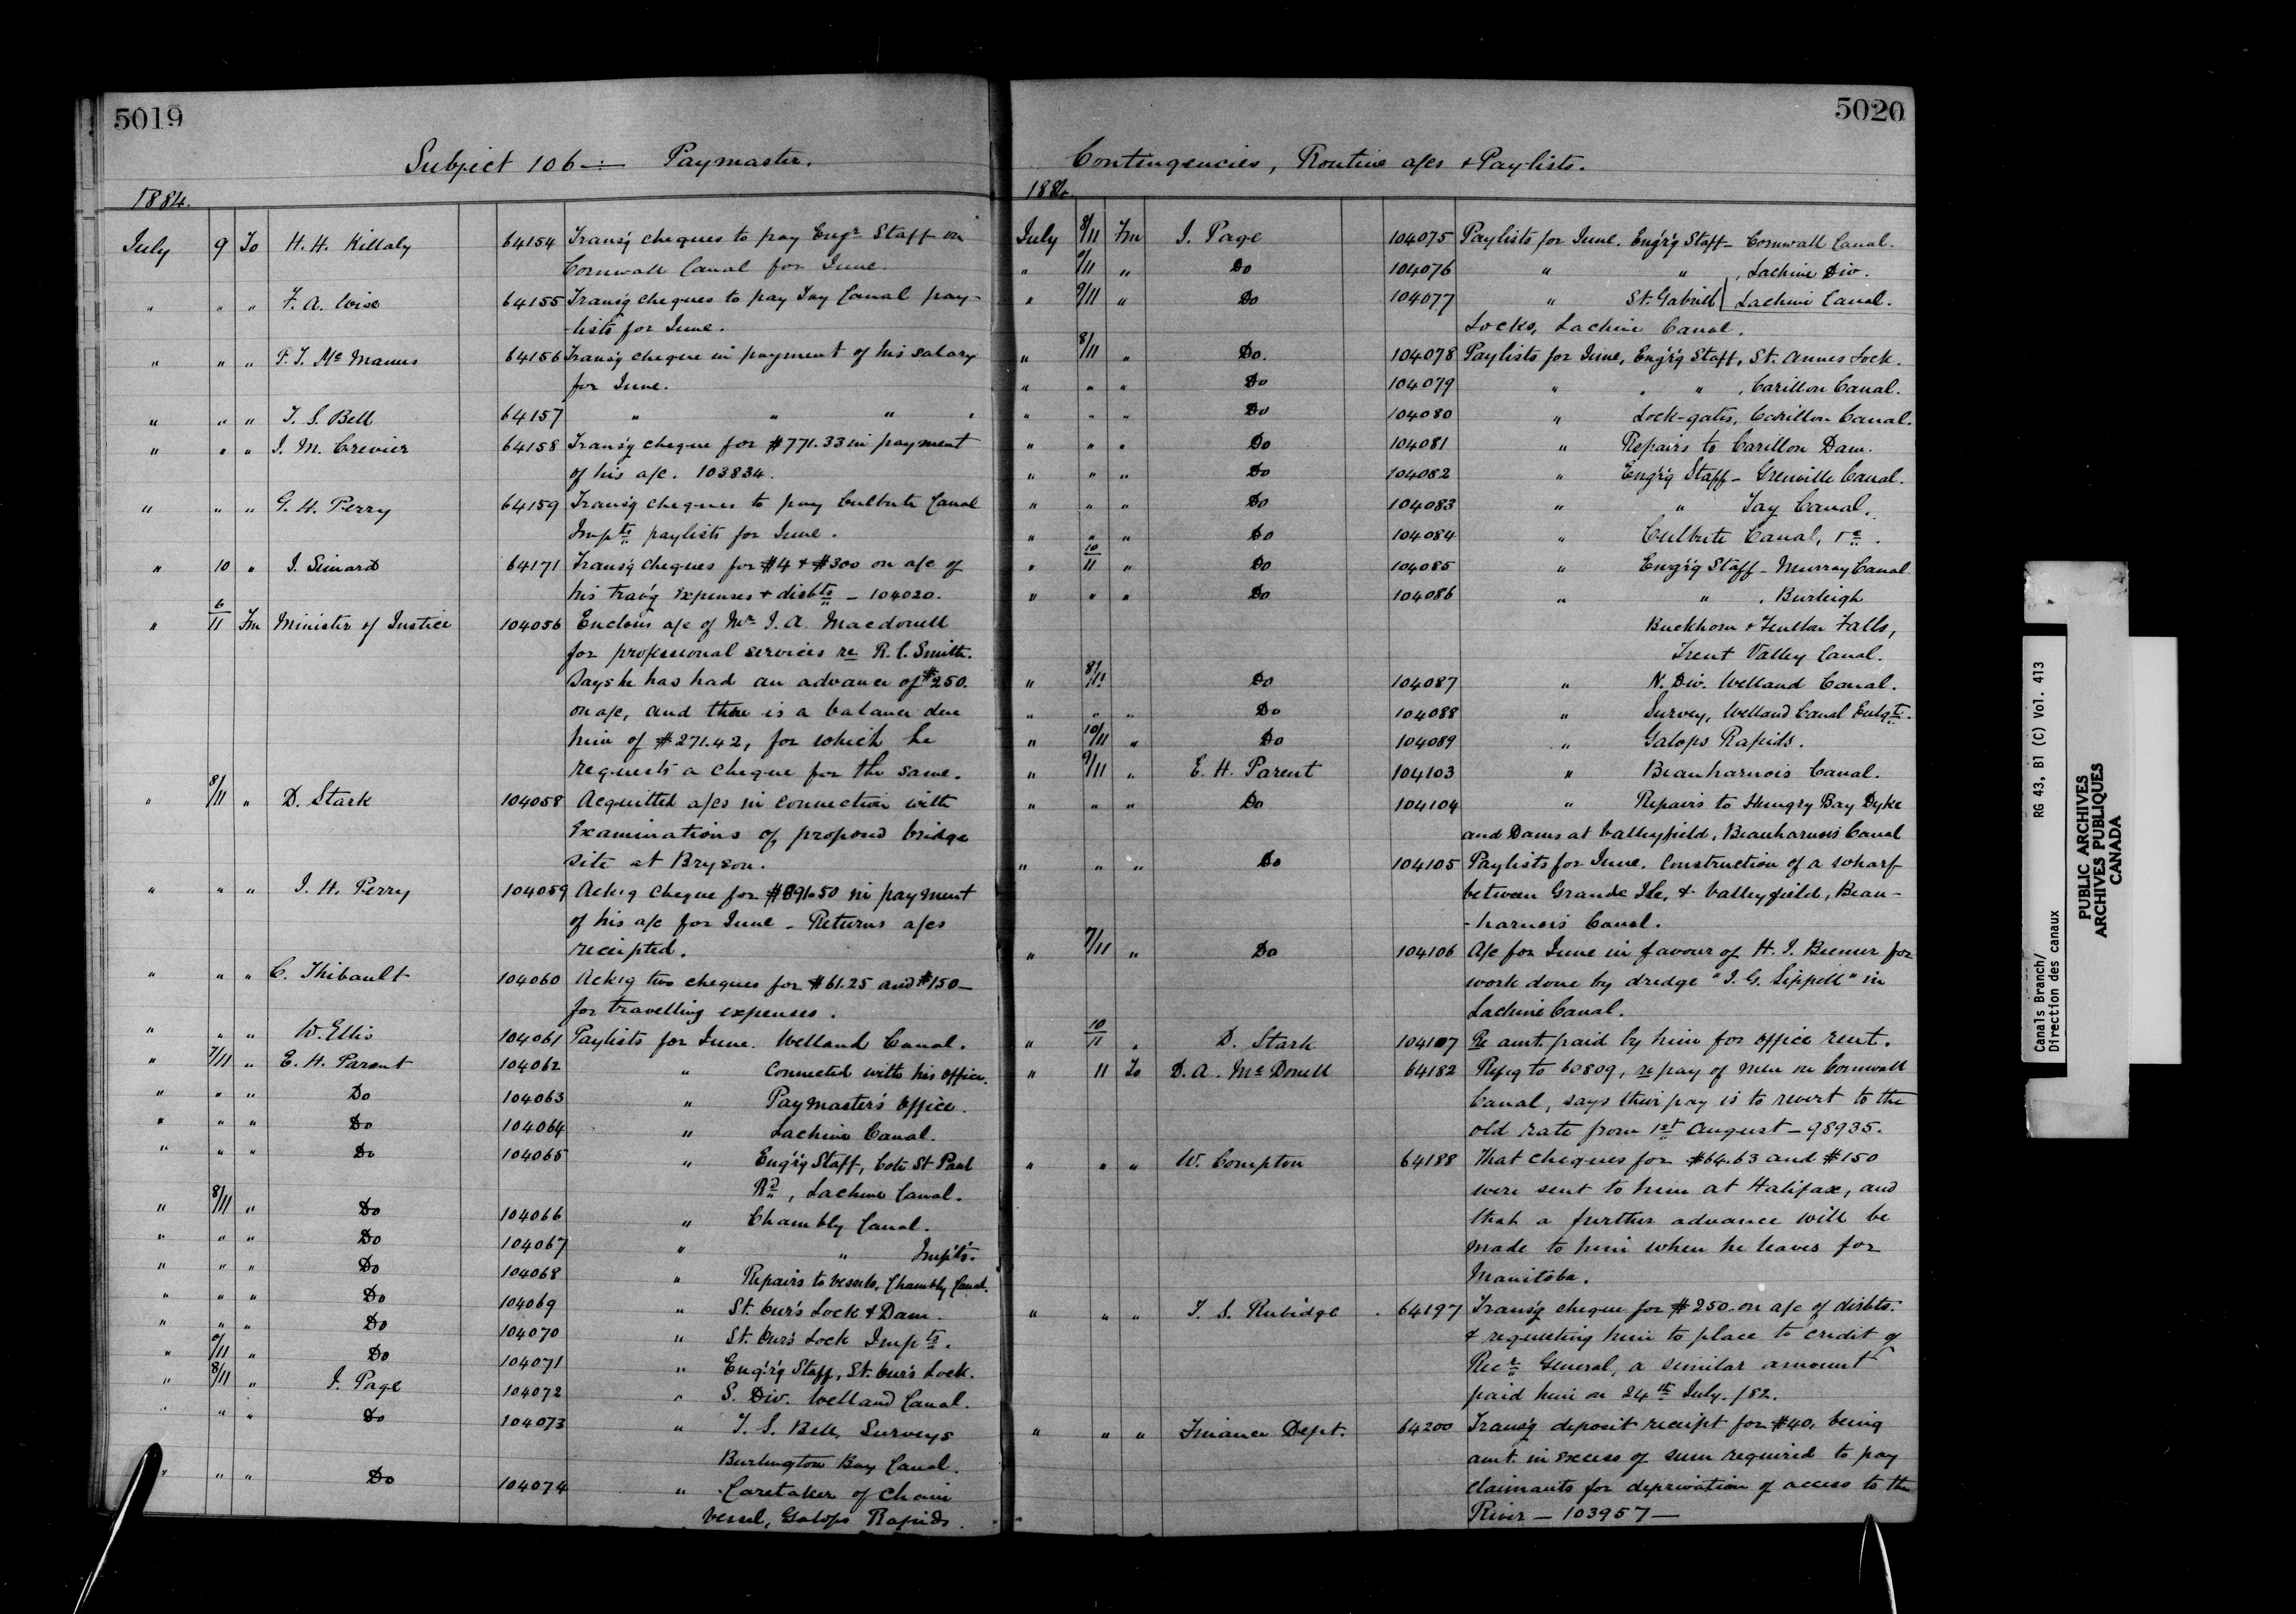 5019
Subject 106 — Paymaster.
1884.
July 9 To H. H. Killaly 64154 Transg cheques to pay Engr. Staff on
Cornwall Canal for June.
" " " F. A. Wise 64155 Transg cheques to pay Tay Canal pay-
-lists for June.
" " " P. J. Mc Manus 64156 Transg cheque in payment of his salary
for June.
" " " T. S. Bell 64157 " " " "
" " " J. M. Crevier 64158 Transg cheque for $771.33 in payment
of his a/c. 103834.
" " " G. H. Perry 64159 Transg cheques to pay Culbute Canal
Impts paylists for June.
" 10 " J. Simard 64171 Transg cheques for $4 + $300 on a/c of
his travg expenses + disbts — 104020.
" 6/11 Fm Minister of Justice 104056 Enclosis a/c of Mr J. A. Macdonell
for professional services re R. C. Smith.
Says he has had an advance of $250.
on a/c, and there is a balance due
him of $271.42, for which he
requests a cheque for the same.
" 8/11 " D. Stark 104058 Acquitted a/cs in connection with
Examinations of proposed bridge
site at Bryson.
" " " J. H. Perry 104059 Ackg cheque for in payment
of his a/c for June — Returns a/cs
receipted.
" " " C. Thibault 104060 Ackg two cheques for $61.25 and $150—
for travelling expenses.
" " " W. Ellis 104061 Paylists for June. Welland Canal.
" 7/11 " E. H. Parent 104062 " Connected with his office.
" " " Do 104063 " Paymaster's office.
" " " Do 104064 " Lachine Canal.
" " " Do 104065 " Eng'r'g Staff, Cote St Paul
Rd, Lachine Canal.
" 8/11 " Do 104066 " Chambly Canal.
" " " Do 104067 " " Impts.
" " " Do 104068 " Repairs to Vessels, Chambly Canal.
" " " Do 104069 " St. Ours Lock & Dam.
" " " Do 104070 " St. Ours Lock Impts.
" 9/11 " Do 104071 " Eng'r'g Staff, St. Ours Lock.
" 8/11 " J. Page 104072 " S. Div. Welland Canal.
" " " Do 104073 " T. S. Bell, Surveys
Burlington Bay Canal.
" " " Do 104074 " Caretaker of Chain
Vessel, Galops Rapids.
5020
Contingencies, Routine a/cs & Paylists.
1884.
July 8/11 Fm J. Page 104075 Paylists for June. Eng'r'g Staff — Cornwall Canal.
" 9/11 " Do 104076 " " , Lachine Div.
" 9/11 " Do 104077 " St. Gabriel | Lachine Canal.
Locks, Lachine Canal.
" 8/11 " Do. 104078 Paylists for June, Eng'r'g Staff, St. Annes Lock.
" " " Do 104079 " " , Carillon Canal.
" " " Do 104080 " Lock-gates, Carillon Canal.
" " " Do 104081 " Repairs to Carillon Dam.
" " " Do 104082 " Eng'r'g Staff — Grenville Canal.
" " " Do 104083 " " Tay Canal.
" " " Do 104084 " Culbute Canal,
" 10/11 " Do 104085 " Eng'r'g Staff — Murray Canal
" " " Do 104086 " " , Burleigh
Buckhorn & Fenelon Falls,
Trent Valley Canal.
" 8/11 " Do 104087 " N. Div. Welland Canal.
" " " Do 104088 " Survey, Welland Canal Enlgt.
" 10/11 " Do 104089 " Galops Rapids.
" 9/11 " E. H. Parent 104103 " Beauharnois Canal.
" " " Do 104104 " Repairs to Hungry Bay Dyke
and Dams at Valleyfield, Beauharnois Canal
" " " Do 104105 Paylists for June. Construction of a wharf
between Grande Ile, & Valleyfield, Beau-
-harnois Canal.
" 7/11 " Do 104106 A/c for June in favour of H. J. for
work done by dredge "J. G. Sippell" in
Lachine Canal.
" 10/11 " D. Stark 104107 Re amt. paid by him for office rent.
" 11 To D. A. Mc Donell 64182 Refg to 60809, re pay of men on Cornwall
Canal, says their pay is to revert to the
old rate from 1st August — 98935.
" " " W. Compton 64188 That cheques for $64.63 and $150
were sent to him at Halifax, and
that a further advance will be
made to him when he leaves for
Manitoba.
" " " T. S. Rubidge 64197 Transg cheque for $250 on a/c of disbts.
& requesting him to place to credit of
Recr. General, a similar amount
paid him on 24th July /82.
" " " Finance Dept. 64200 Transg deposit receipt for $40, being
amt. in excess of sum required to pay
claimants for deprivation of access to the
River — 103957 —
Canals Branch/ RG 43, B1 (C) Vol. 413
Direction des canaux
PUBLIC ARCHIVES
ARCHIVES PUBLIQUES
CANADA